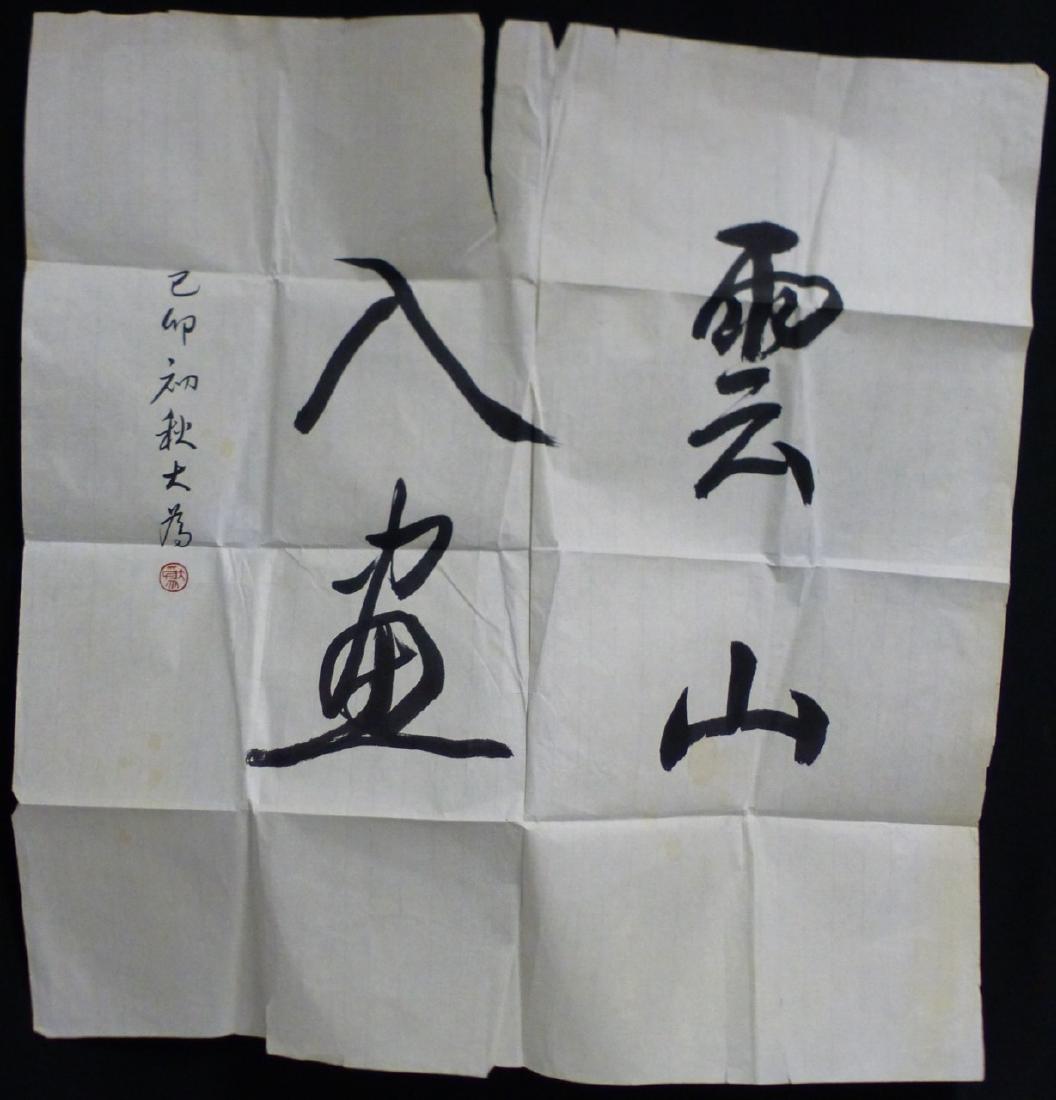 雲山
入畫
己卯初秋大為